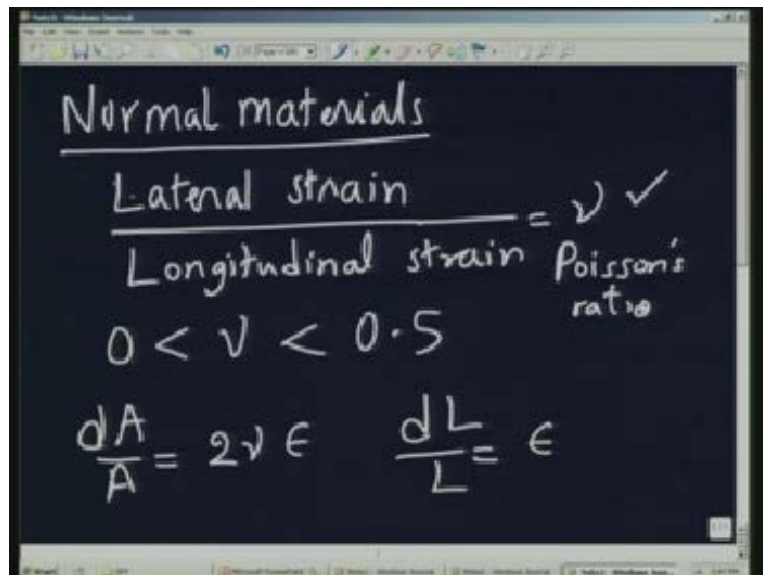 Normal materials
Lateral strain
= ν ✓
Longitudinal strain Poisson's
ratio
0 < ν < 0.5
dA/A = 2νϵ dL/L = ϵ